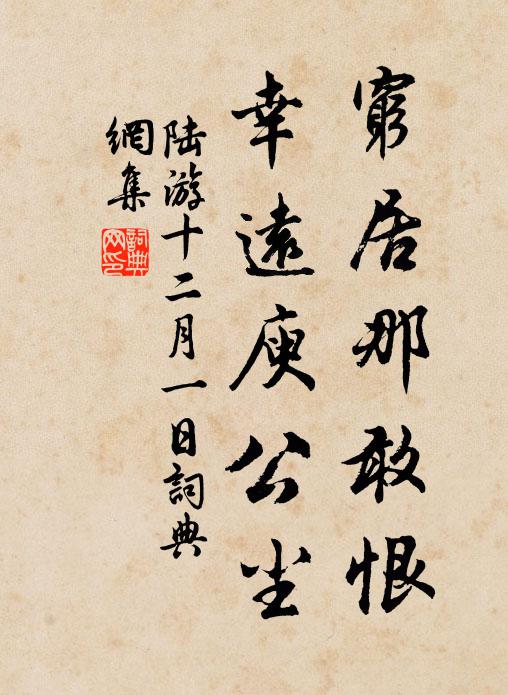 窮居那敢恨
幸遠庾公尘
陆游十二月一日詞典
網集
詞典
网印